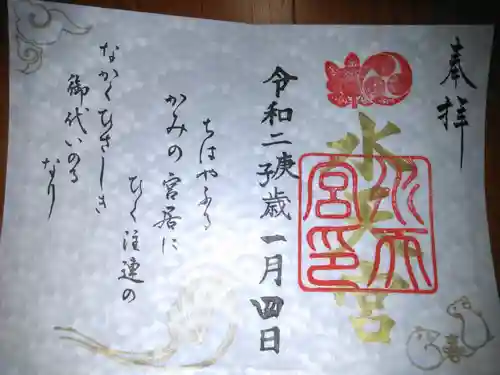 奉拝
水天宮
水天宮印
令和二庚子歳一月四日
ちはやふる
かみの宮居に
ひく注連の
なかくひさしき
御代いのる
なり
喜